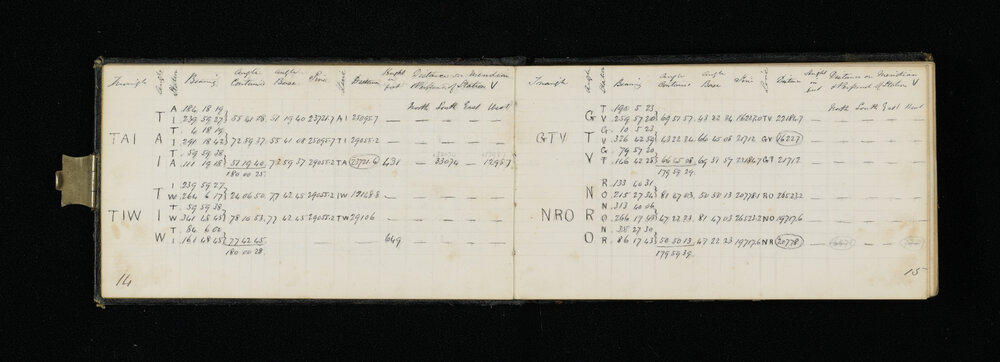 Triangle Angle Station Bearing Angle Contains Angle Base Sine Side Distance Height in feet Distance on Meridian & Perpend of Station V
North South East West
A. 184 18 19
T I. 239 59 27 55 41 08 51 19 40 23721.7 A I 25095.7 — — — — —
T. 4 18 19
TAI A I. 291 18 42 72 59 37 55 41 08 25095.7 T I 29055.2 — — — — —
T. 59 59 38
I A. 111 19 18 51 19 40 72 59 37 29055.2 T A 23721.6 438 — 33074 — 12957
180 00 25
I. 239 59 27
T W. 264 6 17 24 06 50 77 42 45 29055.2 I W 12148.8 — — — — —
T. 59 59 38
TIW I W. 341 48 45 78 10 53 77 42 45 29055.2 T W 29106 — — — — —
T. 84 6 00
W I. 161 48 45 77 42 45 — — — 649 — — — —
180 00 28
14
Triangle Angle Station Bearing Angle Contains Angle Base Sine Side Distance Height in feet Distance on Meridian & Perpend of Station V
North South East West
T. 190 5 23
G V. 259 57 20 69 51 57 43 22 24 16202.0 T V 22184.7 — — — — —
G. 10 5 23
GTV T V. 326 42 59 43 22 24 66 45 08 21712 G V 16227 — — — — —
G. 79 57 20
V T. 146 42 28 66 45 08 69 51 57 22184.7 G T 21712 — — — — —
179 59 29
R. 133 40 31
N O. 215 27 34 81 47 03 50 50 13 20778.1 R O 26523.2 — — — — —
N. 313 40 06
NRO R O. 266 17 43 47 22 23 81 47 03 26523.2 N O 19717.6 — — — — —
N. 35 27 30
O R. 86 17 43 50 50 13 47 22 23 19717.6 N R 20778 — — —
179 59 39
15